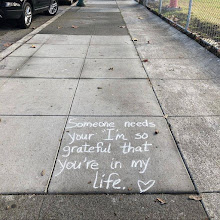 Someone needs
your "I'm so
grateful that
you're in my
life.